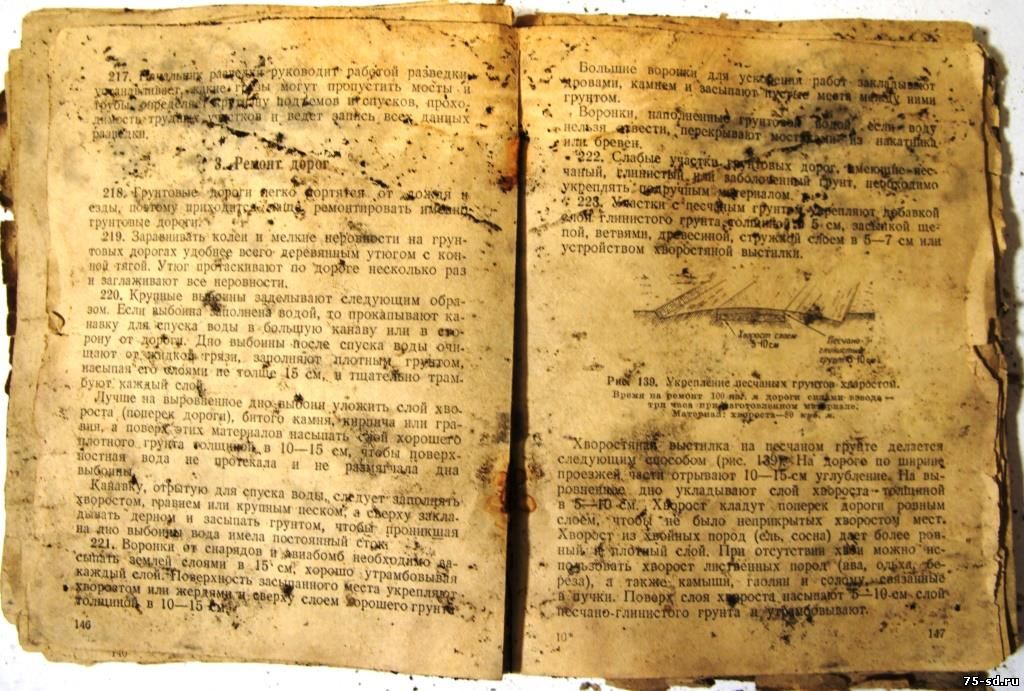 217. Начальник разведки руководит работой разведки,
устанавливает, какие грузы могут пропустить мосты и
трубы, определяет крутизну подъемов и спусков, прохо-
димость трудных участков и ведет запись всех данных
разведки.
3. Ремонт дорог
218. Грунтовые дороги легко портятся от дождя и
езды, поэтому приходится чаще ремонтировать именно
грунтовые дороги.
219. Заравнивать колеи и мелкие неровности на грун-
товых дорогах удобнее всего деревянным утюгом с кон-
ной тягой. Утюг протаскивают по дороге несколько раз
и заглаживают все неровности.
220. Крупные выбоины заделывают следующим обра-
зом. Если выбоина заполнена водой, то прокапывают ка-
навку для спуска воды в большую канаву или в сто-
рону от дороги. Дно выбоины после спуска воды очи-
щают от жидкой грязи, заполняют плотным грунтом,
насыпая его слоями не толще 15 см, и тщательно трам-
буют каждый слой.
Лучше на выровненное дно выбоин уложить слой хво-
роста (поперек дороги), битого камня, кирпича или гра-
вия, а поверх этих материалов насыпать слой хорошего
плотного грунта толщиной в 10—15 см, чтобы поверх-
ностная вода не протекала и не размягчала дна
выбоины.
Канавку, отрытую для спуска воды, следует заполнять
хворостом, гравием или крупным песком, а сверху закла-
дывать дерном и засыпать грунтом, чтобы проникшая
на дно выбоины вода имела постоянный сток.
221. Воронки от снарядов и авиабомб необходимо за-
сыпать землей слоями в 15 см, хорошо утрамбовывая
каждый слой. Поверхность засыпанного места укрепляют
хворостом или жердями и сверху слоем хорошего грунта
толщиной в 10—15 см.
146
Большие воронки для ускорения работ закладывают
дровами, камнем и засыпают пустые места между ними
грунтом.
Воронки, наполненные грунтовой водой, если воду
нельзя отвести, перекрывают из накатника
или бревен.
222. Слабые участки грунтовых дорог, имеющие пес-
чаный, глинистый или заболоченный грунт, необходимо
укреплять подручным материалом.
223. Участки с песчаным грунтом укрепляют добавкой
слоя глинистого грунта толщиной 5 см, засыпкой ще-
пой, ветвями, древесиной, стружкой слоем в 5—7 см или
устройством хворостяной выстилки.
Хворост слоем
5-10см
Песчано-
глинистый
грунт 5-10см
Рис. 139. Укрепление песчаных грунтов хворостом.
Время на ремонт 100 пог. м дороги силами взвода —
три часа при заготовленном материале.
Материал: хвороста—80 куб. м.
Хворостяная выстилка на песчаном грунте делается
следующим способом (рис. 139). На дороге по ширине
проезжей части отрывают 10—15-см углубление. На вы-
ровненное дно укладывают слой хвороста толщиной
в 5—10 см. Хворост кладут поперек дороги ровным
слоем, чтобы не было неприкрытых хворостом мест.
Хворост из хвойных пород (ель, сосна) дает более ров-
ный и плотный слой. При отсутствии хвои можно ис-
пользовать хворост лиственных пород (ива, ольха, бе-
реза), а также камыши, гаолян и солому, связанные
в пучки. Поверх слоя хвороста насыпают 5—10-см слой
песчано-глинистого грунта и утрамбовывают.
10*
147
75-sd.ru